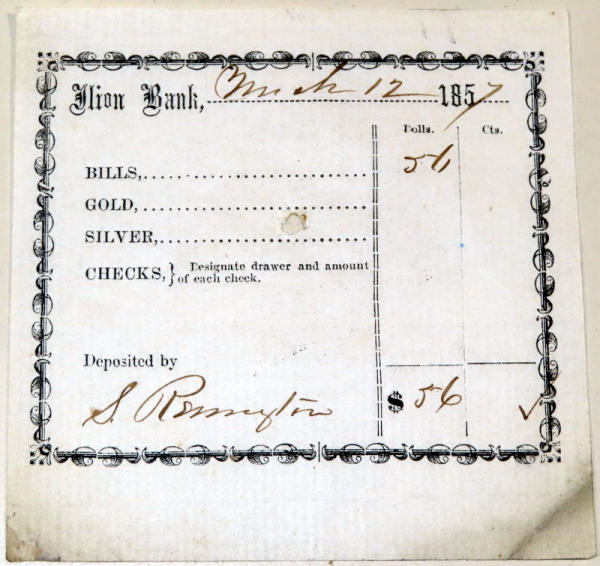 Ilion Bank, March 12 1857
Dolls. Cts.
BILLS, 56
GOLD,
SILVER,
CHECKS, } Designate drawer and amount
of each check.
Deposited by
S. Remington $ 56 ✓